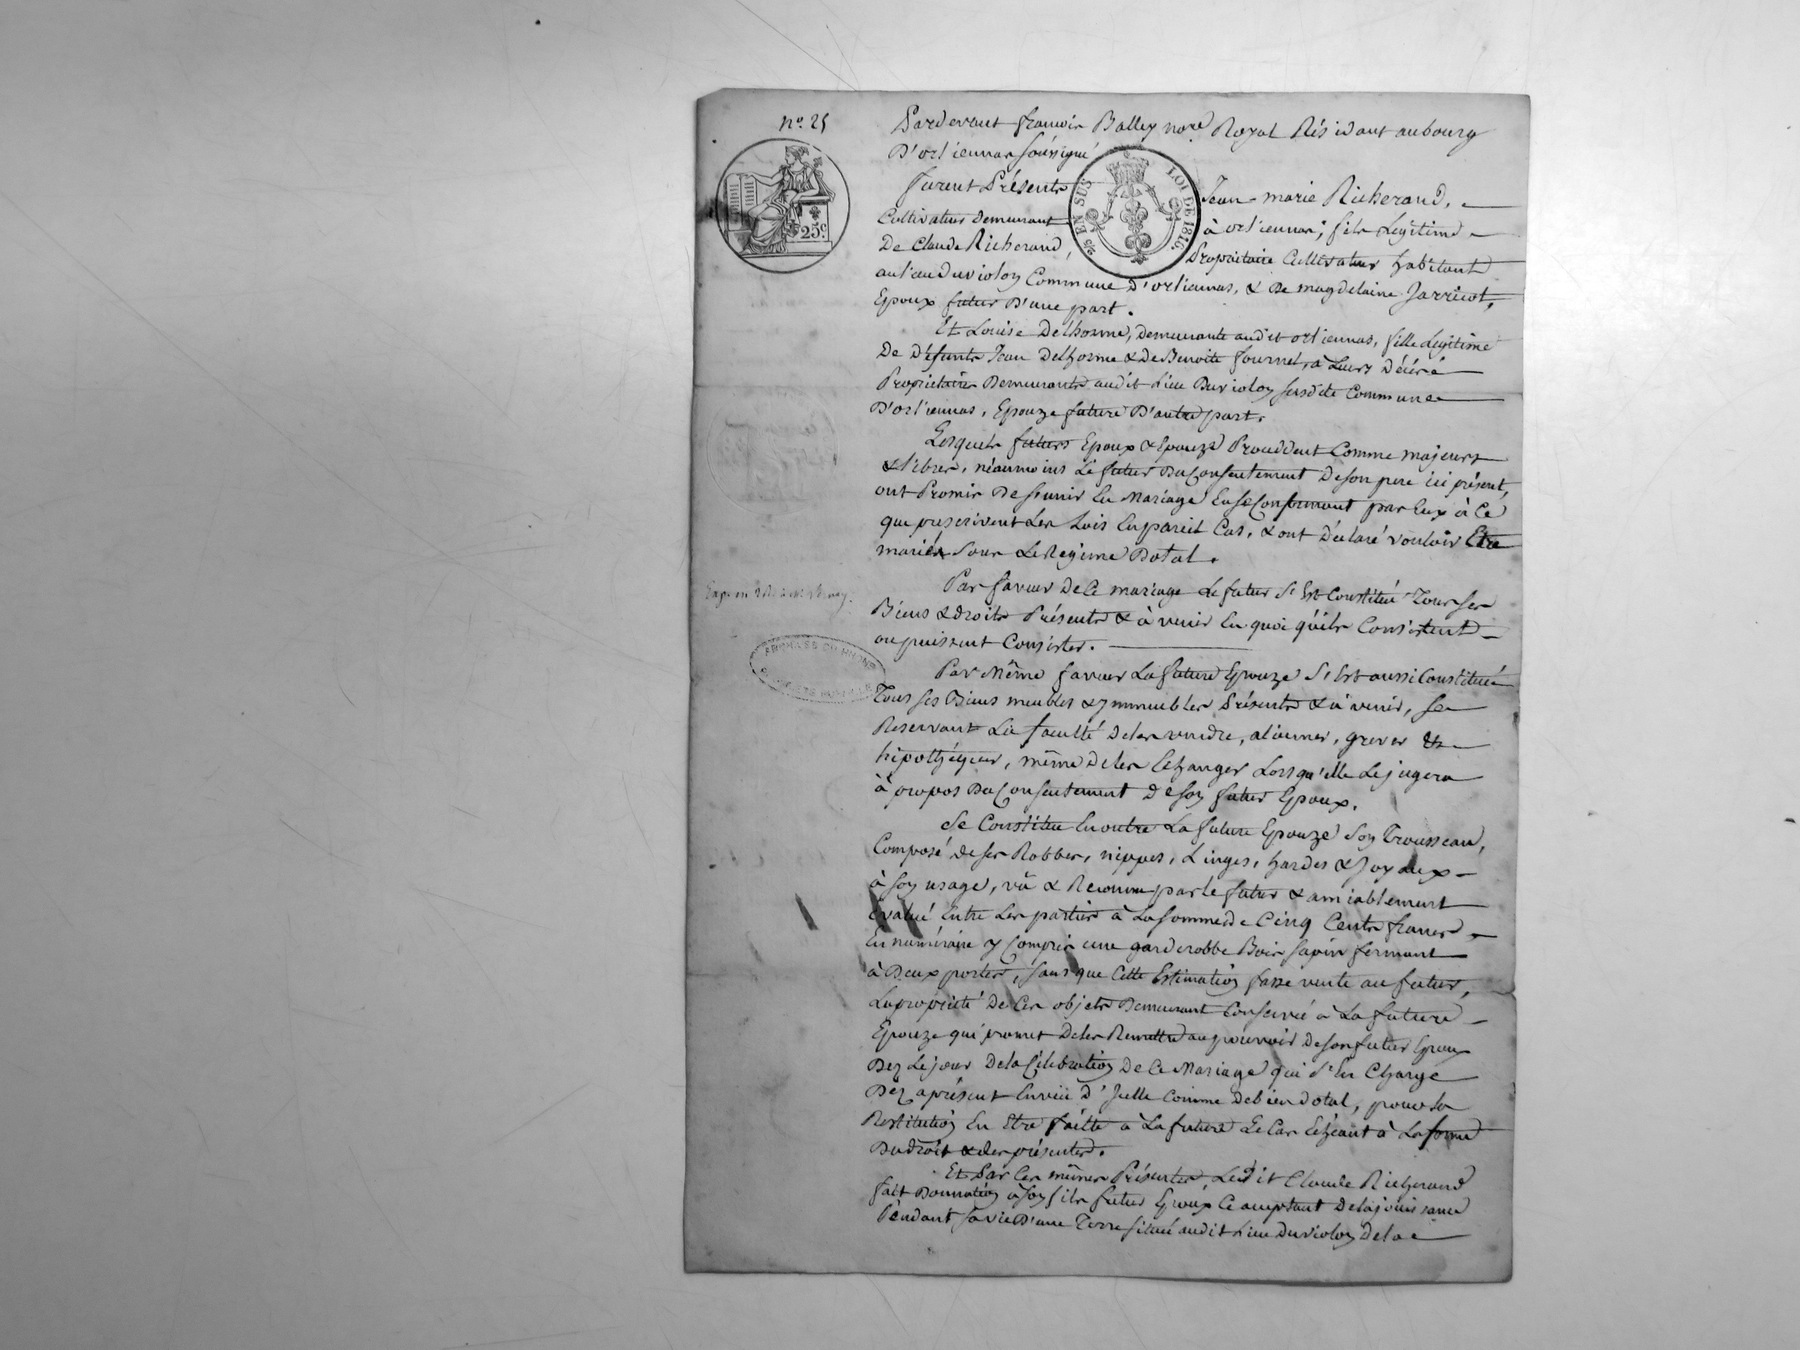 nº. 25
Pardevant françois Balley nore Royal Résidant aubourg
D'orliennas soussigné
25c.
2/5 EN SUS. LOI DE 1816.
furent Présents Jean marie Richerand,
Cultivateur demeurant à orliennas, fils Légitime
De Claude Richerand, Propriétaire Cultivateur habitant
au lieu Duviolon Commune D'orliennas, & De magdelaine Jarricot,
Epoux futur D'une part.
Et Louise Delhorme, Demeurante audit orliennas, fille Légitime
De Défunts Jean Delhorme & De Benoite fournel, à Leurs Décès
Propriétaires Demeurants audit Lieu Duviolon susdite Commune
D'orliennas, Epouze future D'autre part.
Lesquels futurs Epoux & Epouze Procèddent Comme majeurs
& libres, néanmoins Le futur Du Consentement De son pere ici présent,
ont Promis De s'unir En Mariage En se Conformant par Eux à Ce
que prescrivent Les Lois En pareil Cas, & ont Déclaré vouloir Etre
mariés Sous Le Regime Dotal.
Par faveur De Ce mariage Le futur S'Est Constitué Tous ses
Biens & droits Présents & à venir En quoi qu'ils Consistent
ou puissent Consister.
ARCHIVES DU RHONE
Par Même faveur La future Epouze S'Est aussi Constituée
Tous ses Biens meubles & ymmeubles Présents & à venir, se
Reservant La faculté De les vendre, aliener, grever &
hipothéquer, même De les Echanger Lorsqu'elle Le jugera
à propos Du Consentement De son futur Epoux.
Se Constitue En outre La future Epouze Son Trousseau,
Composé de ses Robbes, nippes, Linges, hardes & Joyaux
à son usage, vû & Reconnu par le futur & amiablement
Evalué Entre Les parties à La somme De Cinq Cents francs
En numéraire y Compris une garderobbe Bois sapin fermant
à Deux portes, sans que Cette Estimation fasse vente au futur,
La propriété De Ces objets Demeurant Conservée à La future
Epouze qui promet De les Remettre au pouvoir De son futur Epoux
Dez Le jour De la Célébration De Ce Mariage qui S'En Charge
Dez aprésent Envers D'Icelle Comme De bien dotal, pour La
Restitution En Etre faitte à La future Le Cas Echéant à La forme
Du droit & des présentes.
Et Par Ces mêmes Présentes, Ledit Claude Richerand
fait Donnation à son fils futur Epoux Ce acceptant De la jouissance
Pendant sa vie D'une Terre située audit Lieu Duviolon De la